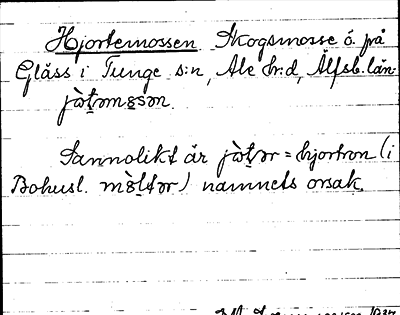 Hjortemossen Skogsmosse ö. på
Gläss i Tunge s:n, Ale h:d, Älfsb. län.
jòt̠əmɷsən.
Sannolikt är jòt̠ər = hjortron (i
Bohusl. mòl̠tər) namnets orsak.